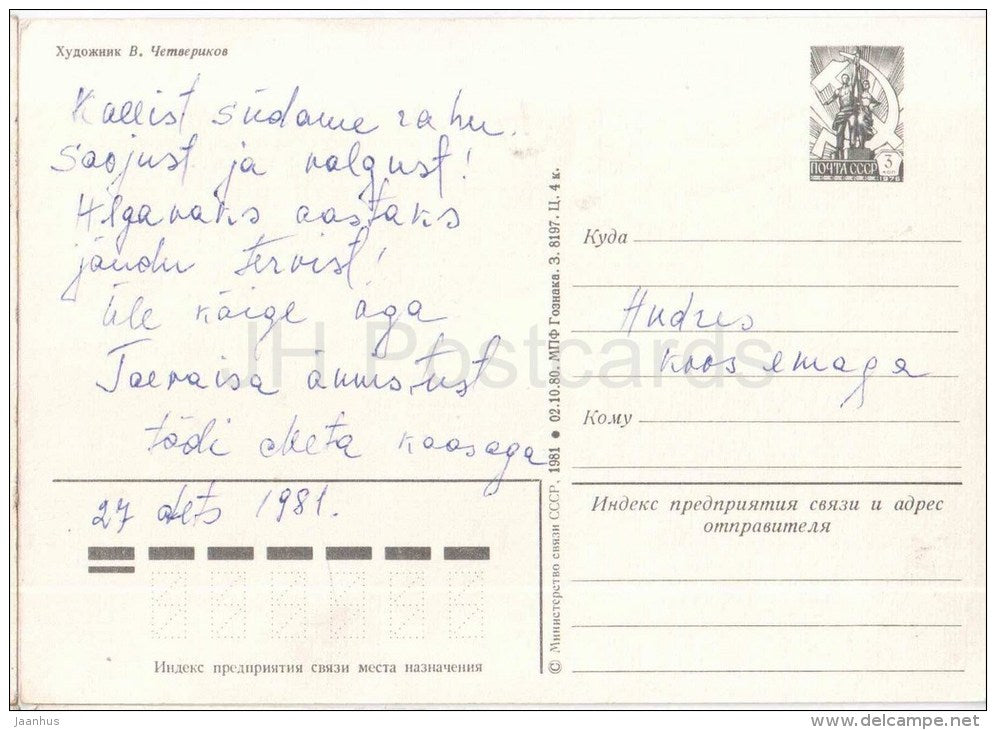 Художник В. Четвериков
Kallist südame rahu.
Soojust ja valgust!
Algavaks aastaks
jõudu tervist!
Üle kõige aga
Taevaisa õnnistust
tädi Meta kaasaga
27 dets 1981.
Индекс предприятия связи места назначения
© Министерство связи СССР, 1981 ● 02.10.80. МПФ Гознака. З. 8197. Ц. 4 к.
ПОЧТА СССР 3 КОП
1976
Куда
Andres
koos emaga
Кому
Индекс предприятия связи и адрес
отправителя
JH Postcards
jaanhus
www.delcampe.net